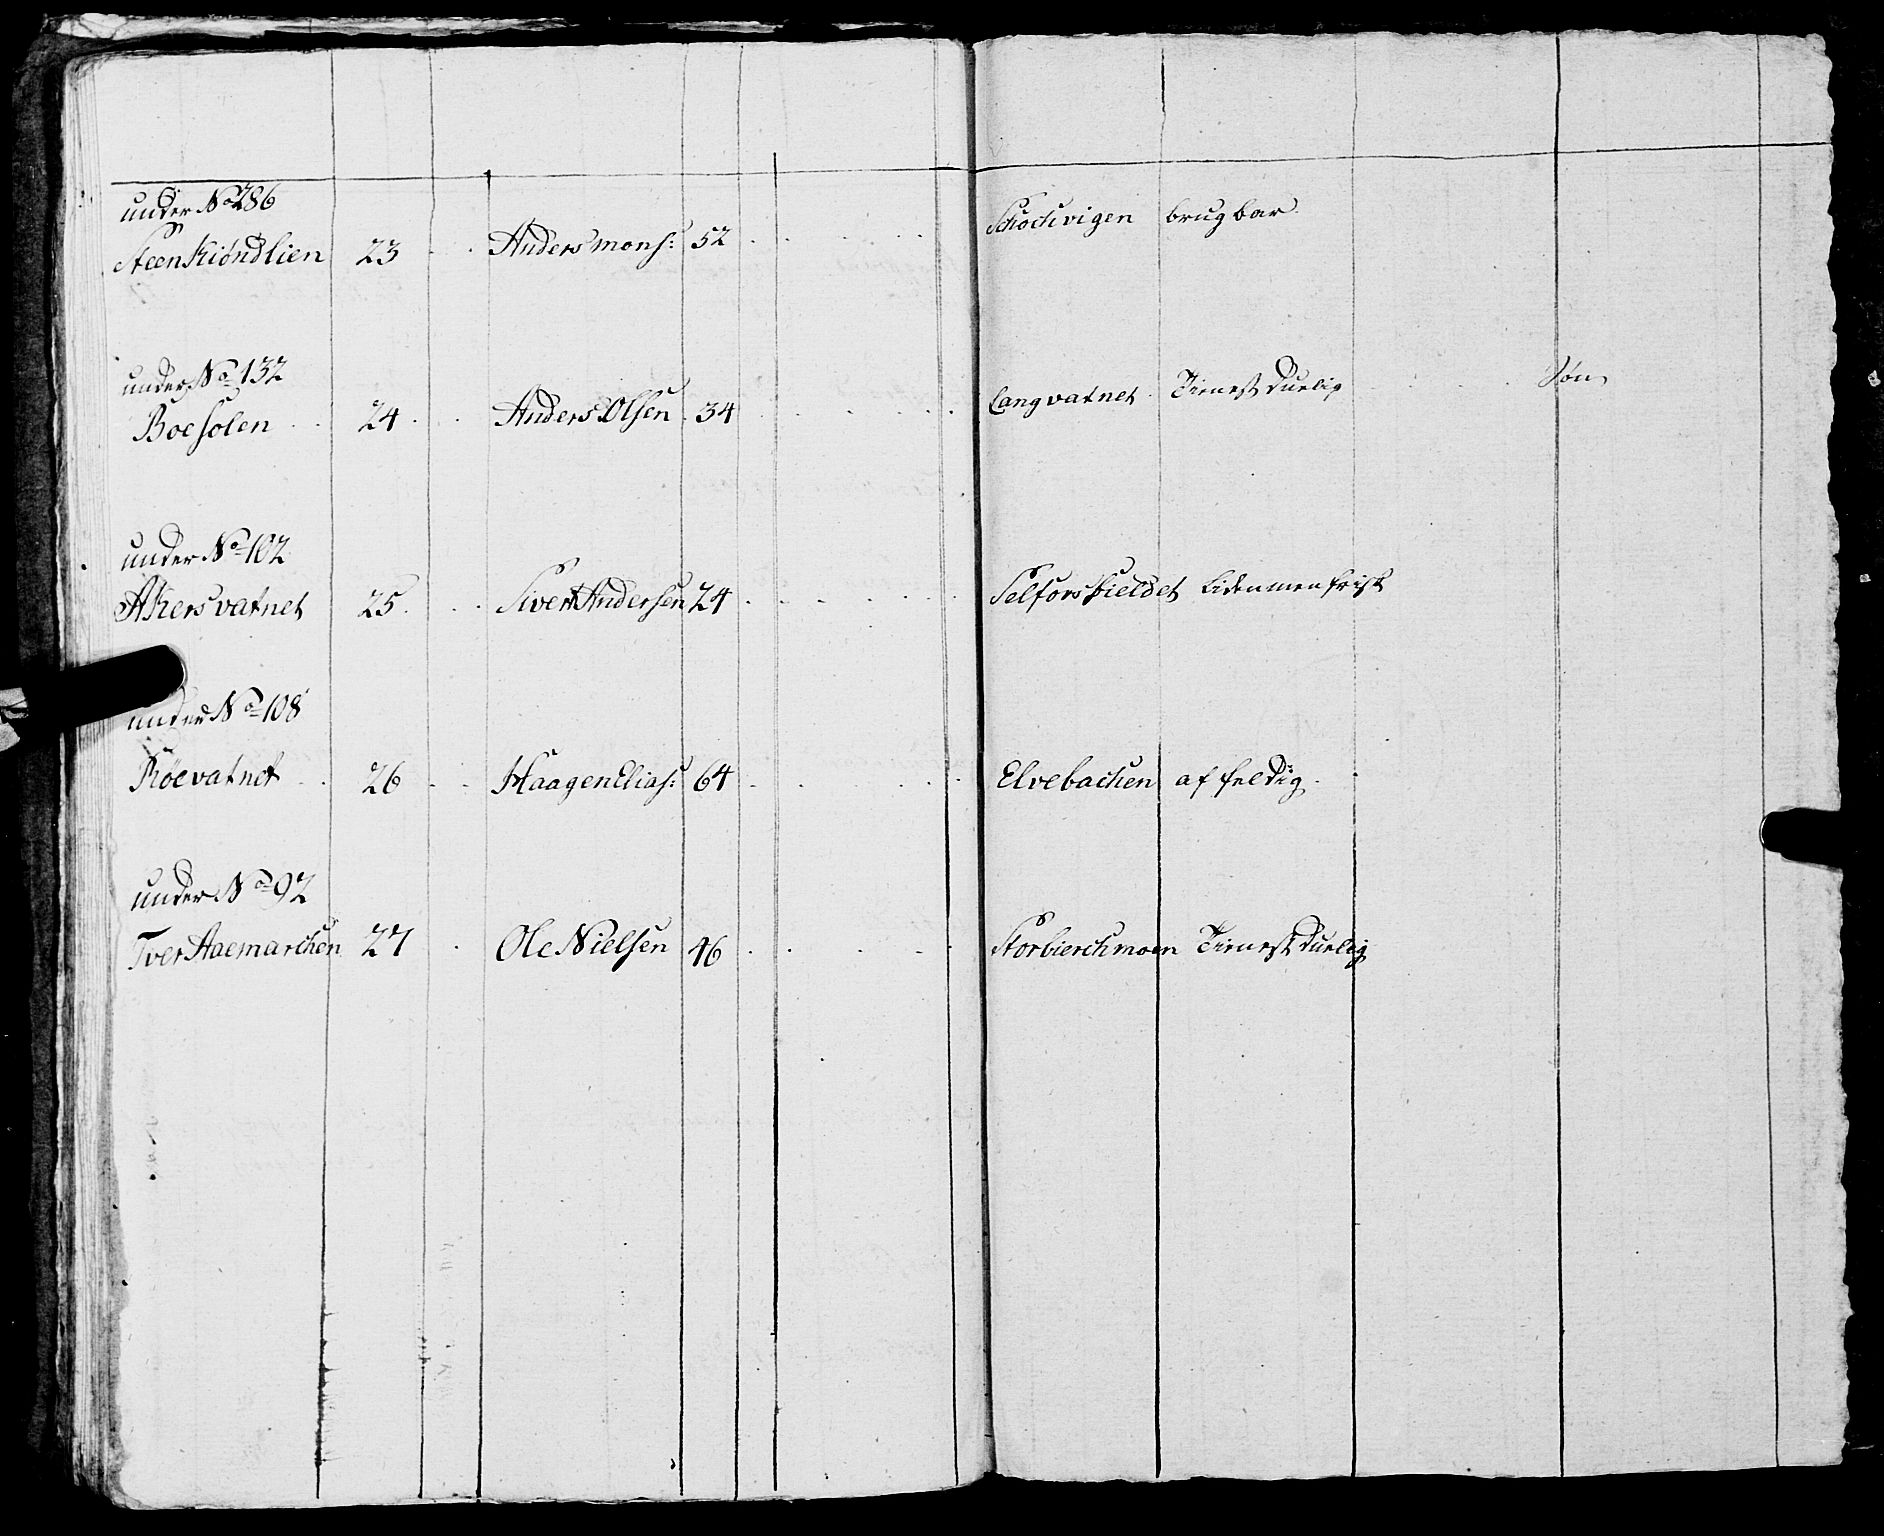 under No 286
Steenkiøndlien 23 Anders mons: 52 Schochvigen brugbar
under No 132
Boesolen 24 Anders Olsen 34 Langvatnet Tienest Duelig Søn
under No 102
Akersvatnet 25 Siver Andersen 24 Selforsfieldet Liden men frisk
under No 108
Røevatnet 26 Haagen Elias: 64 Elvebachen affeldig
under No 92
Tver Aaemarchen 27 Ole Nielsen 46 Storbierchmoen Tienest Duelig